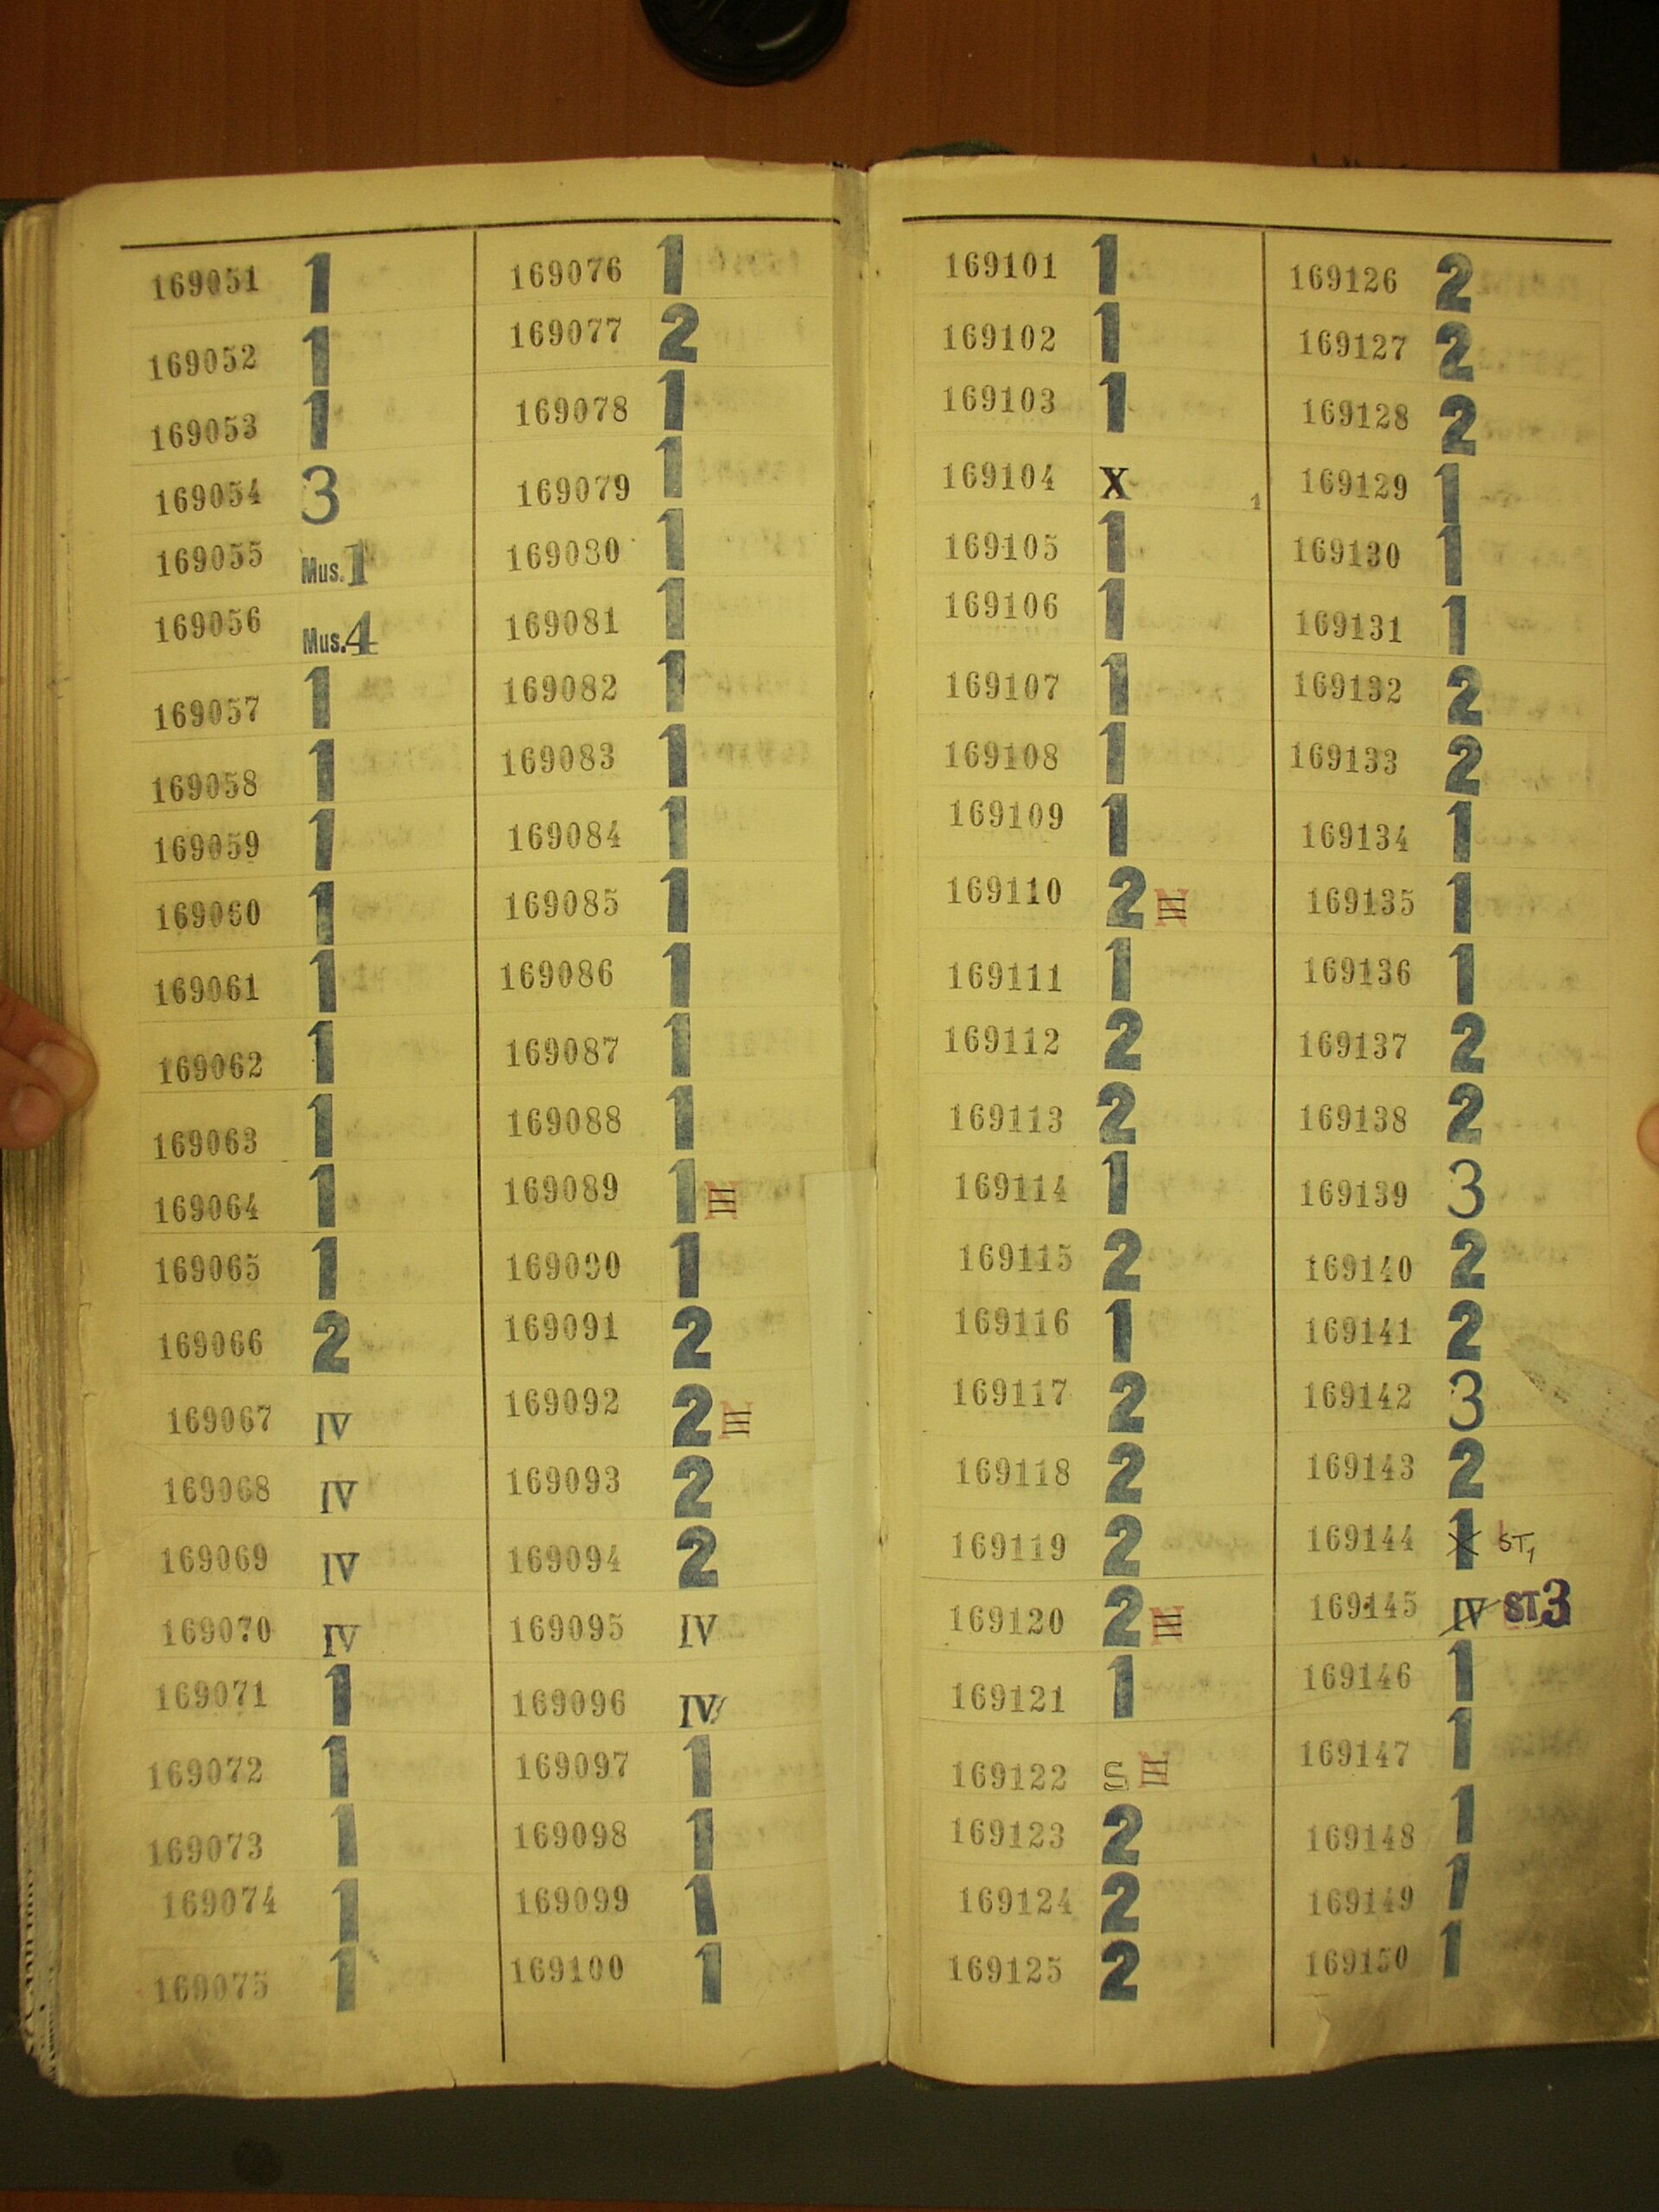 169051 1
169052 1
169053 1
169054 3
169055 Mus.1
169056 Mus.4
169057 1
169058 1
169059 1
169060 1
169061 1
169062 1
169063 1
169064 1
169065 1
169066 2
169067 IV
169068 IV
169069 IV
169070 IV
169071 1
169072 1
169073 1
169074 1
169075 1
169076 1
169077 2
169078 1
169079 1
169080 1
169081 1
169082 1
169083 1
169084 1
169085 1
169086 1
169087 1
169088 1
169089 1 N
169090 1
169091 2
169092 2 N
169093 2
169094 2
169095 IV
169096 IV
169097 1
169098 1
169099 1
169100 1
169101 1
169102 1
169103 1
169104 X 1
169105 1
169106 1
169107 1
169108 1
169109 1
169110 2 N
169111 1
169112 2
169113 2
169114 1
169115 2
169116 1
169117 2
169118 2
169119 2
169120 2 N
169121 1
169122 S N
169123 2
169124 2
169125 2
169126 2
169127 2
169128 2
169129 1
169130 1
169131 1
169132 2
169133 2
169134 1
169135 1
169136 1
169137 2
169138 2
169139 3
169140 2
169141 2
169142 3
169143 2
169144 1 ST1
169145 IV ST3
169146 1
169147 1
169148 1
169149 1
169150 1